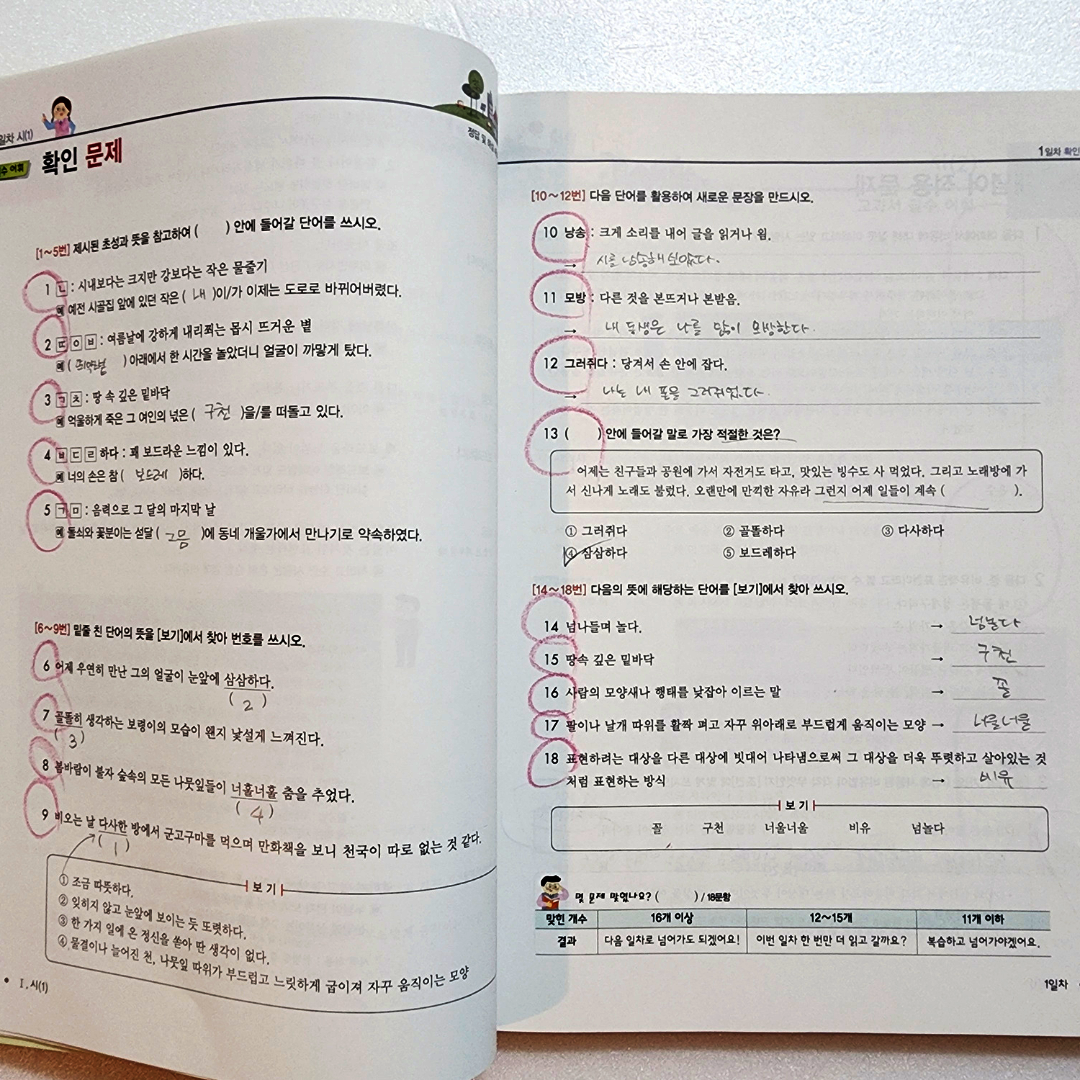 일차 시(1)
정답 및
수 어휘
확인 문제
[1～5번] 제시된 초성과 뜻을 참고하여 (      ) 안에 들어갈 단어를 쓰시오.
1 ㄴ : 시내보다는 크지만 강보다는 작은 물줄기
예 예전 시골집 앞에 있던 작은 ( 내 )이/가 이제는 도로로 바뀌어버렸다.
2 ㄸㅇㅂ : 여름날에 강하게 내리쬐는 몹시 뜨거운 볕
예 (      ) 아래에서 한 시간을 놀았더니 얼굴이 까맣게 탔다.
3 ㄱㅊ : 땅 속 깊은 밑바닥
예 억울하게 죽은 그 여인의 넋은 ( 구천 )을/를 떠돌고 있다.
4 ㅂㄷㄹ하다 : 꽤 보드라운 느낌이 있다.
예 너의 손은 참 ( 보드레 )하다.
5 ㄱㅁ : 음력으로 그 달의 마지막 날
예 돌쇠와 꽃분이는 섣달 ( 그믐 )에 동네 개울가에서 만나기로 약속하였다.
[6～9번] 밑줄 친 단어의 뜻을 [보기]에서 찾아 번호를 쓰시오.
6 어제 우연히 만난 그의 얼굴이 눈앞에 삼삼하다.
( 2 )
7 골똘히 생각하는 보령이의 모습이 왠지 낯설게 느껴진다.
( 3 )
8 봄바람이 불자 숲속의 모든 나뭇잎들이 너훌너훌 춤을 추었다.
( 4 )
9 비오는 날 다사한 방에서 군고구마를 먹으며 만화책을 보니 천국이 따로 없는 것 같다.
( 1 )
보 기
① 조금 따뜻하다.
② 잊히지 않고 눈앞에 보이는 듯 또렷하다.
③ 한 가지 일에 온 정신을 쏟아 딴 생각이 없다.
④ 물결이나 늘어진 천, 나뭇잎 따위가 부드럽고 느릿하게 굽이져 자꾸 움직이는 모양
• Ⅰ. 시(1)
1일차 확인
[10～12번] 다음 단어를 활용하여 새로운 문장을 만드시오.
10 낭송 : 크게 소리를 내어 글을 읽거나 욈.
→ 시를 낭송해 보았다.
11 모방 : 다른 것을 본뜨거나 본받음.
→ 내 동생은 나를 많이 모방한다.
12 그러쥐다 : 당겨서 손 안에 잡다.
→ 나는 내 폰을 그러쥐었다.
13 (      ) 안에 들어갈 말로 가장 적절한 것은?
어제는 친구들과 공원에 가서 자전거도 타고, 맛있는 빙수도 사 먹었다. 그리고 노래방에 가
서 신나게 노래도 불렀다. 오랜만에 만끽한 자유라 그런지 어제 일들이 계속 (      ).
① 그러쥐다 ② 골똘하다 ③ 다사하다
④ 삼삼하다 ⑤ 보드레하다
[14～18번] 다음의 뜻에 해당하는 단어를 [보기]에서 찾아 쓰시오.
14 넘나들며 놀다. → 넘놀다
15 땅속 깊은 밑바닥 → 구천
16 사람의 모양새나 행태를 낮잡아 이르는 말 → 꼴
17 팔이나 날개 따위를 활짝 펴고 자꾸 위아래로 부드럽게 움직이는 모양 → 너울너울
18 표현하려는 대상을 다른 대상에 빗대어 나타냄으로써 그 대상을 더욱 뚜렷하고 살아있는 것
처럼 표현하는 방식 → 비유
보 기
꼴 구천 너울너울 비유 넘놀다
몇 문제 맞혔나요? (      ) / 18문항
맞힌 개수 16개 이상 12～15개 11개 이하
결과 다음 일차로 넘어가도 되겠어요! 이번 일차 한 번만 더 읽고 갈까요? 복습하고 넘어가야겠어요.
1일차